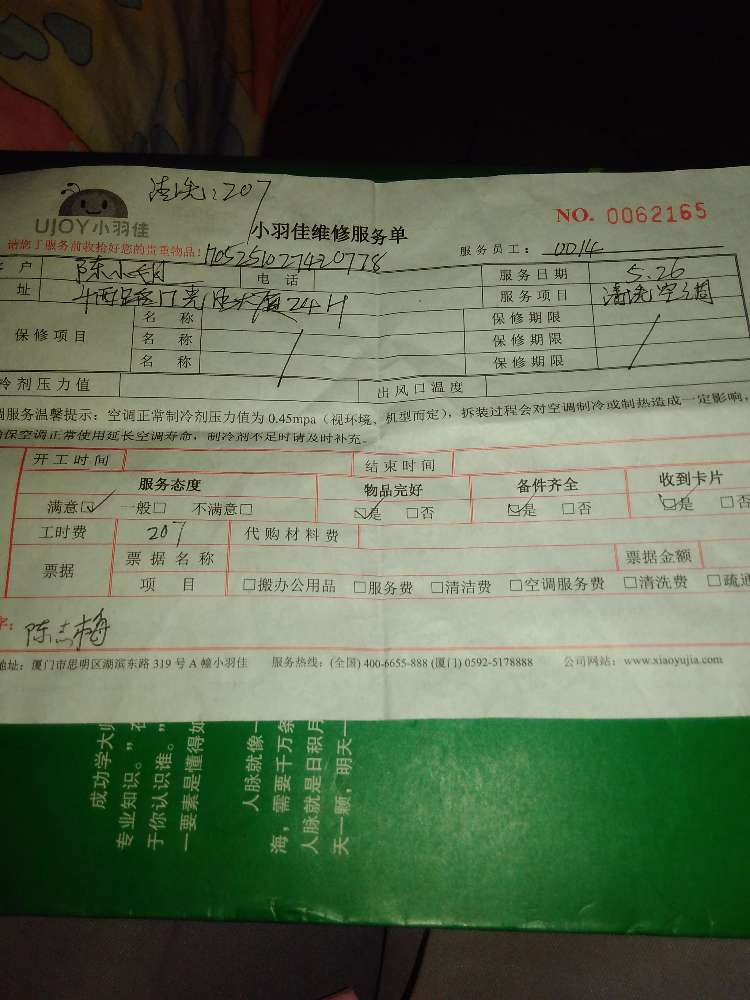 清洗:207
UJOY小羽佳
小羽佳维修服务单
NO. 0062165
请您于服务前收拾好您的贵重物品!
1705251027420778
服务员工: 0014
户 陈小姐 电话 服务日期 5.26
址 厦门 大厦24H 服务项目 清洗空调
保修项目 名称 保修期限
名称 保修期限
名称 保修期限
冷剂压力值 出风口温度
调服务温馨提示:空调正常制冷剂压力值为 0.45mpa(视环境、机型而定),拆装过程会对空调制冷或制热造成一定影响,
确保空调正常使用延长空调寿命,制冷剂不足时请及时补充。
开工时间 结束时间
服务态度 物品完好 备件齐全 收到卡片
满意☑ 一般□ 不满意□ ☑是 □否 ☑是 □否 ☑是 □否
工时费 207 代购材料费
票据 票据名称 票据金额
项目 □搬办公用品 □服务费 □清洁费 □空调服务费 □清洗费 □疏通
字: 陈志梅
地址:厦门市思明区湖滨东路 319 号 A 幢小羽佳 服务热线:(全国) 400-6655-888 (厦门) 0592-5178888 公司网站:www.xiaoyujia.com
成功学大师
专业知识。”在
于你认识谁。”
一要素是懂得如
人脉就像一
海,需要千万条
人脉就是日积月
天一颗,明天一